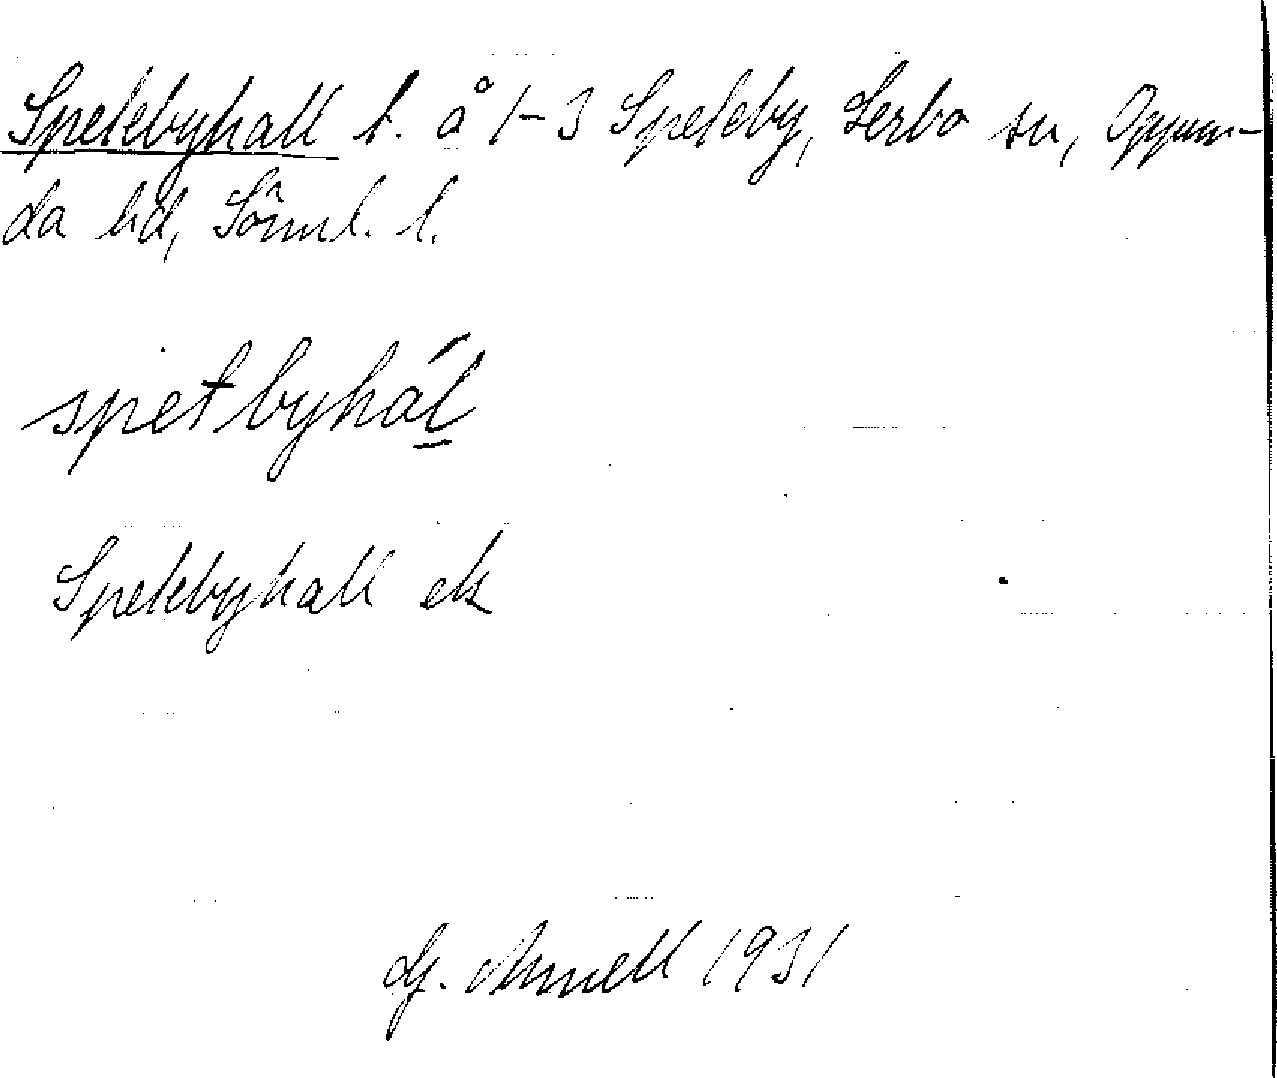 Spelebyhall t. å 1-3 Speleby, Lerbo sn, Oppun-
da hd, Sörml. l.
spełbyhál
Spelebyhall ek
G. Arnell 1931